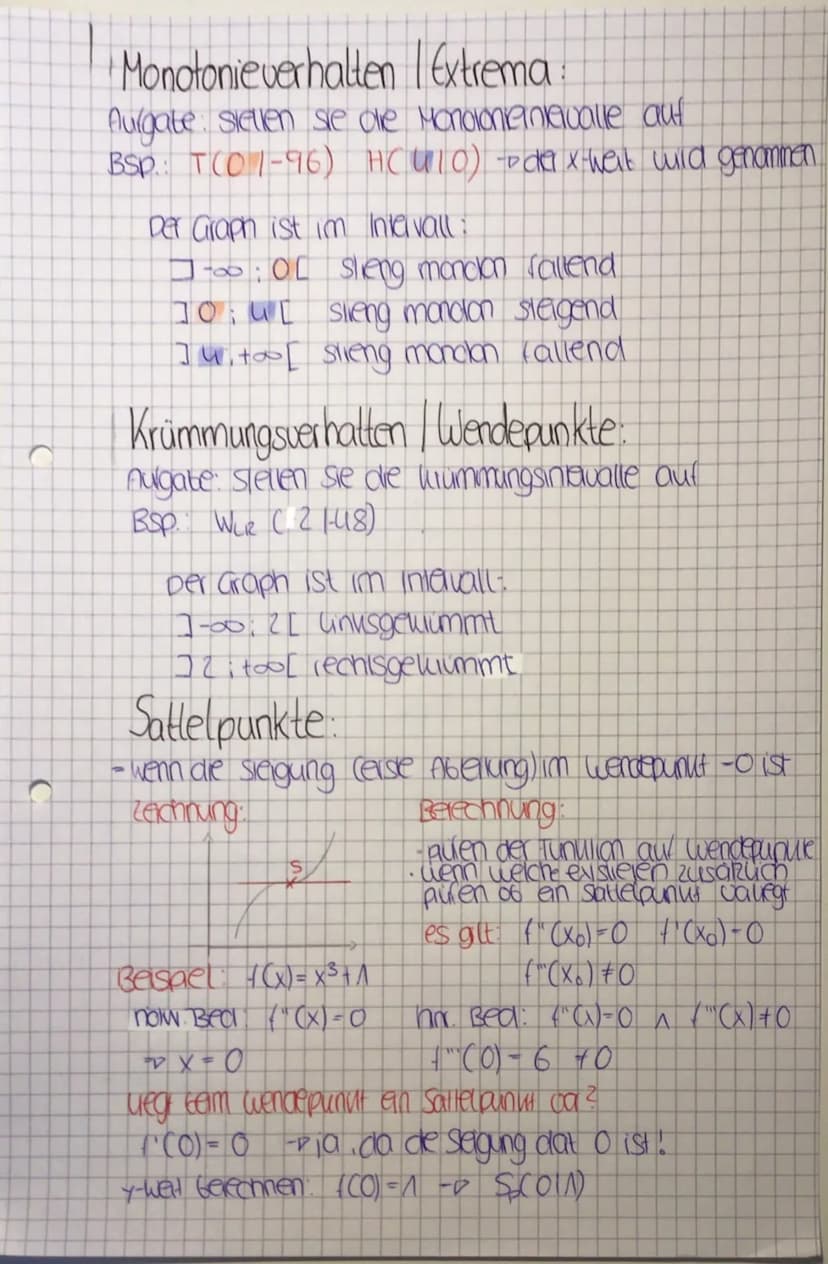 Monotonieverhalten / Extrema:
Aufgabe: stellen sie die Monotonieintervalle auf
BSP.: T(0|-96) H(4|0) → der x-Wert wird genommen
Der Graph ist im Intervall:
]-∞; 0[ streng monoton fallend
]0; 4[ streng monoton steigend
]4; +∞[ streng monoton fallend
Krümmungsverhalten / Wendepunkte:
Aufgabe: stellen sie die Krümmungsintervalle auf
BSP.: WLR (2|-48)
Der Graph ist im Intervall:
]-∞; 2[ linksgekrümmt
]2; +∞[ rechtsgekrümmt
Sattelpunkte:
- wenn die Steigung (erste Ableitung) im Wendepunkt =0 ist
Zeichnung:
S
Berechnung:
- prüfen der Funktion auf Wendepunkte
- wenn welche existieren zusätzlich
prüfen ob ein Sattelpunkt vorliegt
es gilt: f''(x₀)=0 f'(x₀)=0
f'''(x₀)≠0
Beispiel: f(x)=x³+1
notw. Bed.: f''(x)=0 hin. Bed.: f''(x)=0 ∧ f'''(x)≠0
⇒ x=0 f'''(0)=6 ≠0
liegt beim Wendepunkt ein Sattelpunkt vor?
f'(0)=0 → ja, da die Steigung dort 0 ist!
y-Wert berechnen: f(0)=1 → S(0|1)